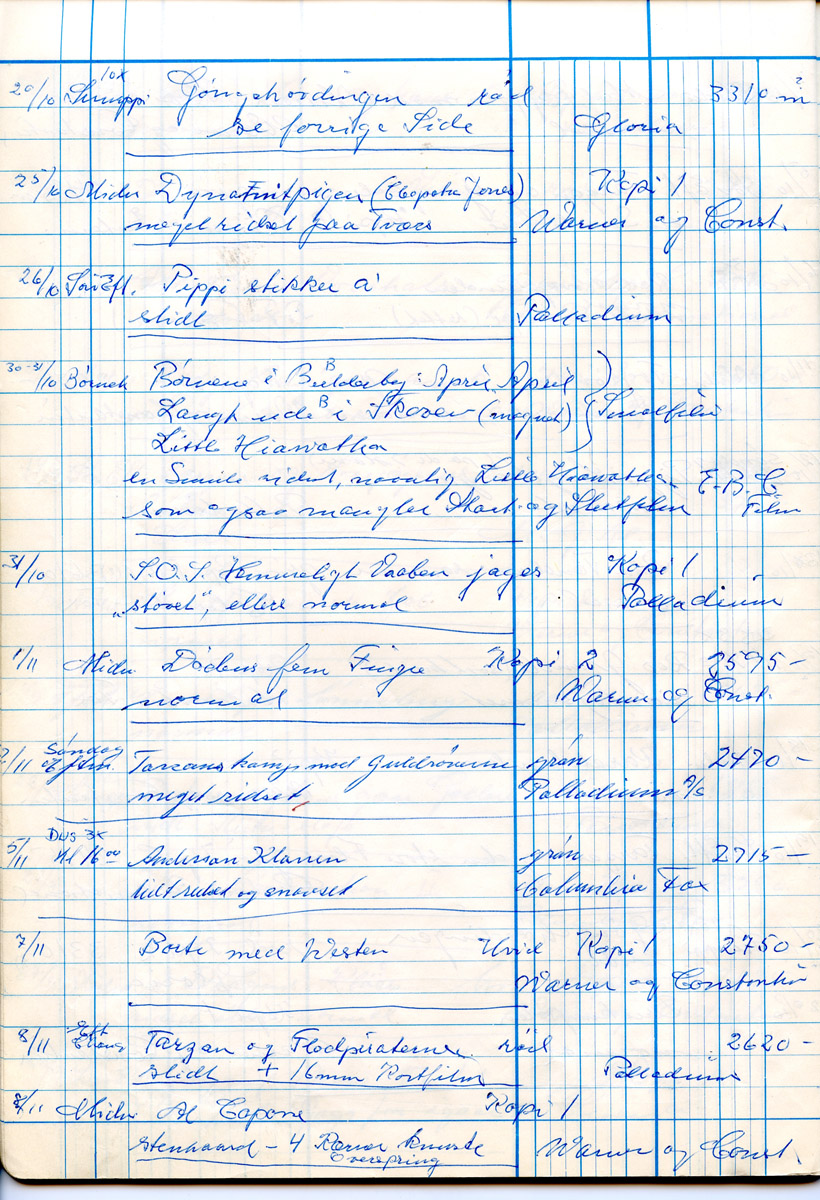 20/10 10x Gøngehøvdingen rød 3310 m
se forrige Side Gloria
25/10 Midn Dynamitpigen (Cleopatra Jones) Kopi 1
meget ridset paa Tværs Warner og Const.
26/10 Pippi stikker a'
slidt Palladium
30-31/10 Børnek Børnene i Bulderby: April, April
Langt ude i Skoven (magnet) Smalfilm
Little Hiawatha
en Smule ridset, navnlig Little Hiawatha E.B.C.
som ogsaa mangler Start- og Slutfilm Film
31/10 S.O.S. Hemmeligt Vaaben jages Kopi 1
"støvet", ellers normal Palladium
1/11 Midn Dødens fem Fingre Kopi 2 2595-
normal Warner og Const.
2/11 Søndag Eftm. Tarzans kamp med Guldrøverne grøn 2470-
meget ridset Palladium A/S
5/11 DUS 3x Kl 16 00 Anderson Klanen grøn 2715-
lidt ridset og snavset Columbia Fox
7/11 Borte med Westen Hvid Kopi 1 2750-
Warner og Constantin
8/11 Tarzan og Flodpiraterne rød 2620-
slidt + 16mm Kortfilm Palladium
Midn Al Capone Kopi 1
stenhaard - 4 Warner og Const.
Overspring